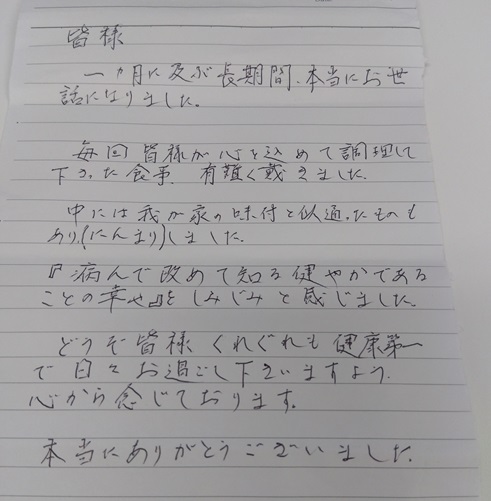 皆様
一ヵ月に及ぶ長期間、本当にお世
話になりました。
毎回皆様が心を込めて調理して
下さった食事、有難く戴きました。
中には我が家の味付と似通ったものも
あり、(にんまり)しました。
『病んで改めて知る健やかである
ことの幸せ』をしみじみと感じました。
どうぞ皆様くれぐれも健康第一
で日々お過ごし下さいますよう、
心から念じております。
本当にありがとうございました。